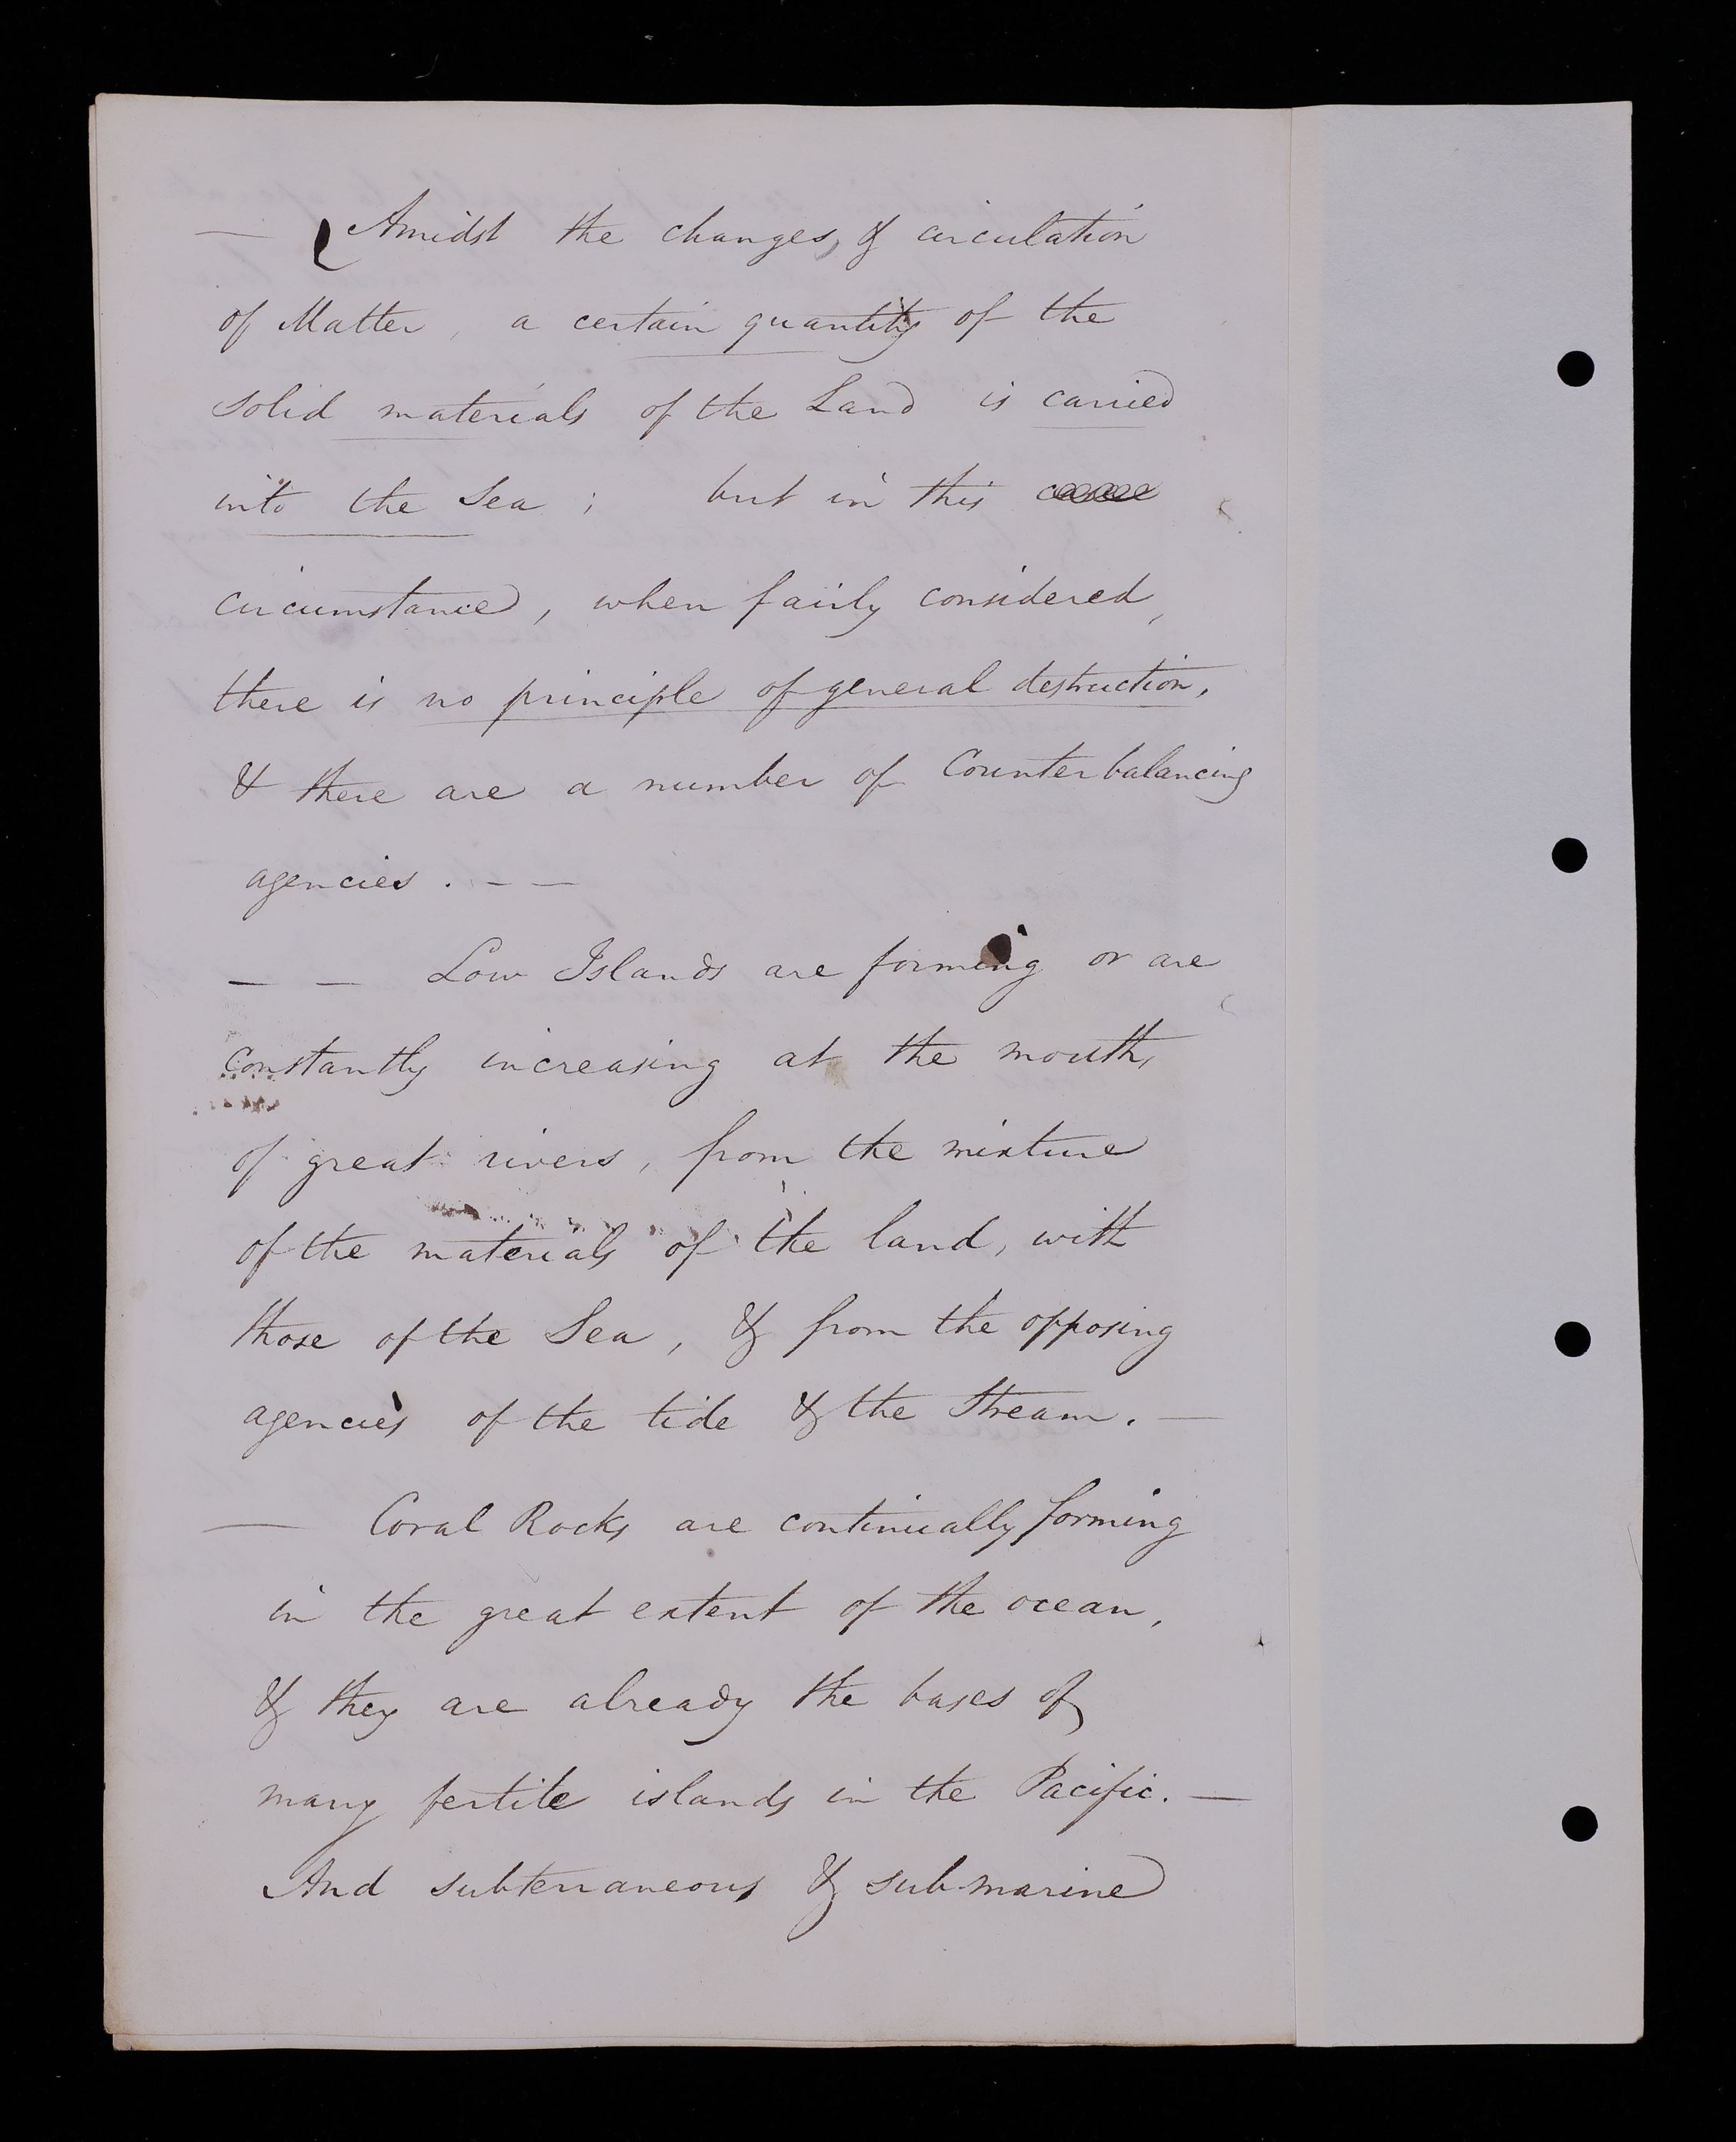 — Amidst the changes, & circulation
of Matter, a certain quantity of the
solid materials of the Land is carried
into the Sea; but in this
circumstance, when fairly considered,
there is no principle of general destruction,
& there are a number of Counterbalancing
agencies. – —
— — Low Islands are forming or are
constantly increasing at the mouths
of great rivers, from the mixture
of the materials of the land, with
those of the Sea, & from the opposing
agencies of the tide & the Stream. —
— Coral Rocks are continually forming
in the great extent of the ocean,
& they are already the bases of
many fertile islands in the Pacific. —
And subterraneous & submarine